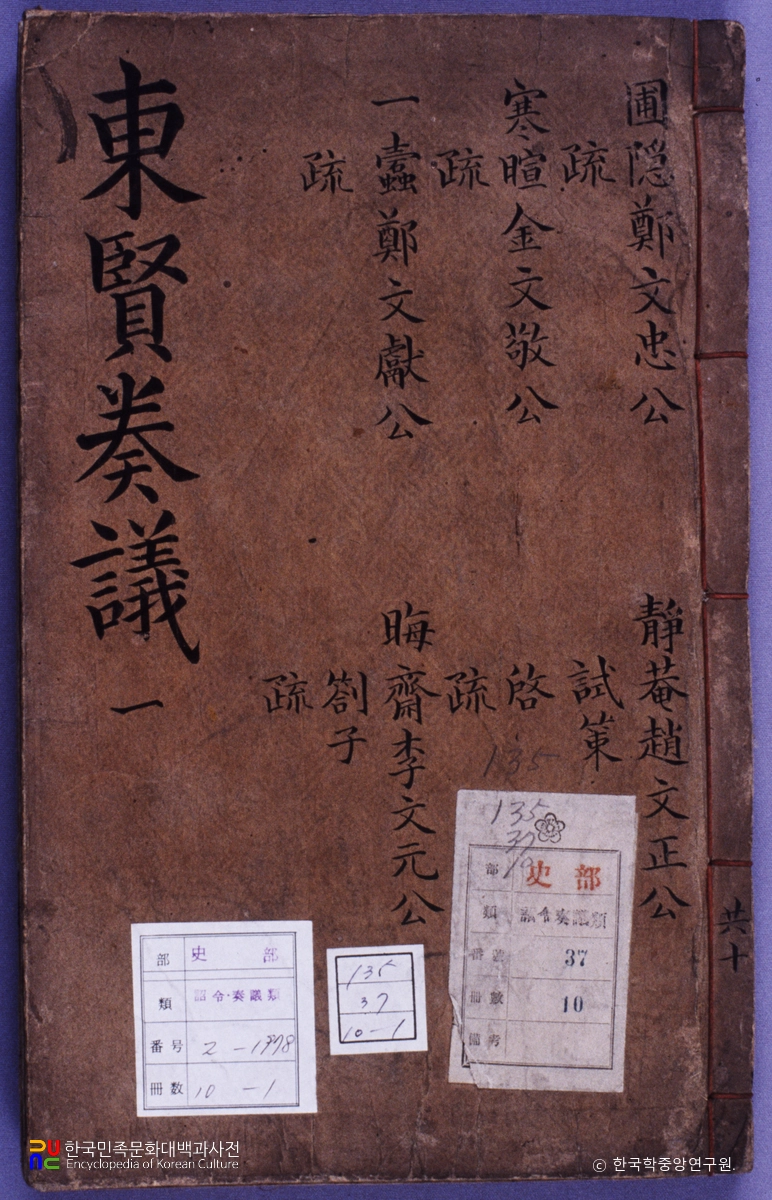 東賢奏議 一
圃隠鄭文忠公
疏
寒暄金文敬公
疏
一蠹鄭文獻公
疏
靜菴趙文正公
試策
啓
疏
晦齋李文元公
劄子
疏
共十
135
135
37
10
部 史部
類 詔令奏議類
番號 37
冊數 10
備考
135
37
10-1
部 史部
類 詔令·奏議類
番号 2-1978
冊数 10-1
한국민족문화대백과사전
Encyclopedia of Korean Culture
© 한국학중앙연구원.